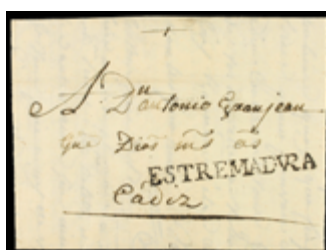 A Dn
Antonio Granjean
que Dios ms as
ESTREMADURA
Cádiz